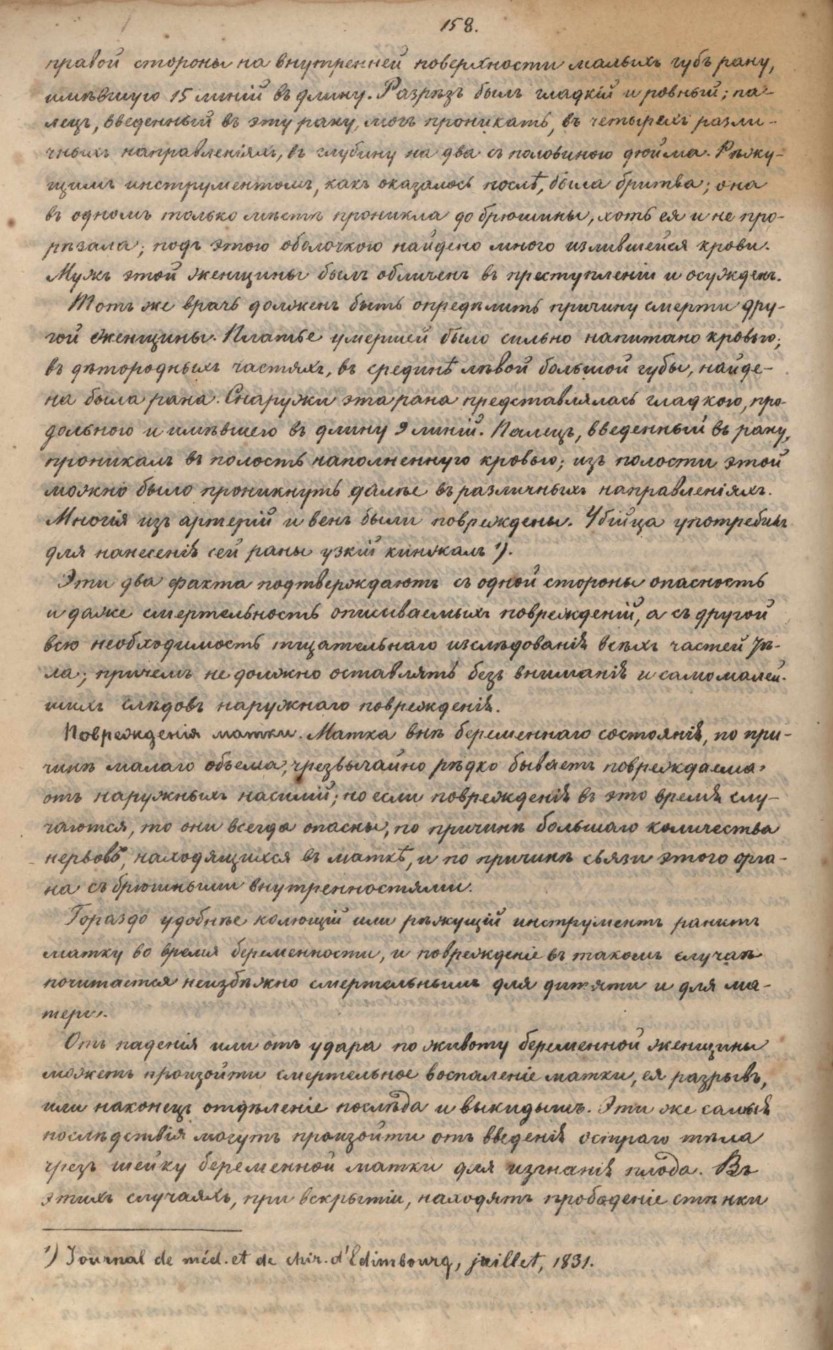 158.
правой стороны на внутренней поверхности малыхъ губъ рану,
имѣвшую 15 линій въ длину. Разрѣзъ былъ гладкій и ровный; па-
лецъ, введенный въ эту рану, могъ проникать, въ четырехъ разли-
чныхъ направленіяхъ, въ глубину на два съ половиною дюйма. Рѣжу-
щимъ инструментомъ, какъ оказалось послѣ, была бритва; она
въ одномъ только мѣстѣ проникла до брюшины, хоть ея и не про-
рѣзала; подъ этою оболочкою найдено много излившейся крови.
Мужъ этой женщины былъ обличенъ въ преступленіи и осужденъ.
Тотъ же врачъ долженъ быть опредѣлить причину смерти дру-
гой женщины. Платье умершей было сильно напитано кровью;
въ дѣтородныхъ частяхъ, въ срединѣ лѣвой большой губы, найде-
на была рана. Снаружи эта рана представлялась гладкою, про-
дольною и имѣвшею въ длину 9 линій. Палецъ, введенный въ рану,
проникалъ въ полость наполненную кровью; изъ полости этой
можно было проникнуть далѣе въ различныхъ направленіяхъ.
Многія изъ артерій и венъ были повреждены. Убійца употребилъ
для нанесенія сей раны узкій кинжалъ ¹).
Эти два факта подтверждаютъ съ одной стороны опасность
и даже смертельность описываемыхъ поврежденій, а съ другой
всю необходимость тщательнаго изслѣдованія всѣхъ частей тѣ-
ла; причемъ не должно оставлять безъ вниманія и самомалей-
шихъ слѣдовъ наружнаго поврежденія.
Поврежденія матки. Матка внѣ беременнаго состоянія, по при-
чинѣ малаго объема, чрезвычайно рѣдко бываетъ повреждаема
отъ наружныхъ насилій; но если поврежденія въ это время слу-
чаются, то они всегда опасны, по причинѣ большаго количества
нервовъ, находящихся въ маткѣ, и по причинѣ связи этого орга-
на съ брюшными внутренностями.
Гораздо удобнѣе колющій или рѣжущій инструментъ ранитъ
матку во время беременности, и поврежденіе въ такомъ случаѣ
почитается неизбѣжно смертельнымъ для дитяти и для ма-
тери.
Отъ паденія или отъ удара по животу беременной женщины
можетъ произойти смертельное воспаленіе матки, ея разрывъ,
или наконецъ отдѣленіе послѣда и выкидышъ. Эти же самыя
послѣдствія могутъ произойти отъ введенія остраго тѣла
чрезъ шейку беременной матки для изгнанія плода. Въ
этихъ случаяхъ, при вскрытіи, находятъ прободеніе стѣнки
¹) Journal de méd. et de chir. d'Edimbourg, juillet, 1831.